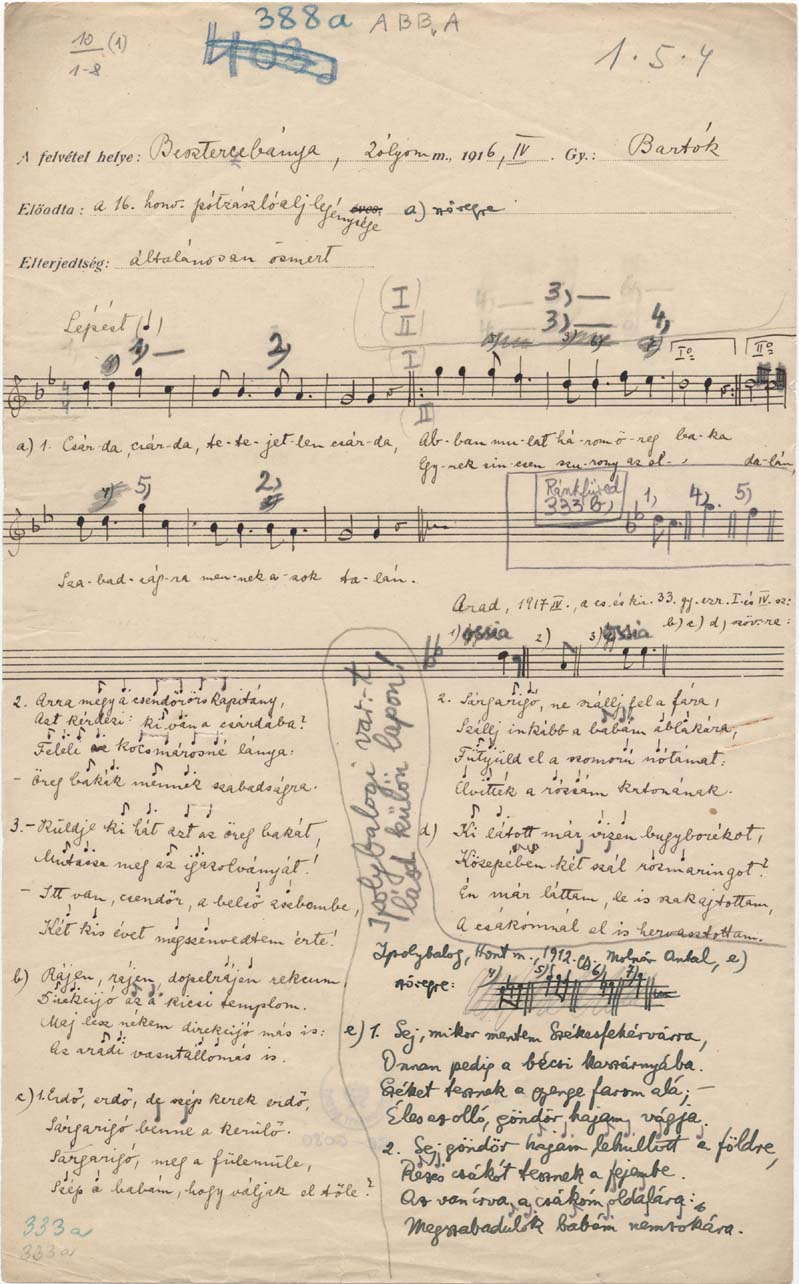 388a ABBvA
10/1-8 (1)
403.
1.5.4
A felvétel helye: Besztercebánya, Zólyom m., 1916, IV. Gy.: Bartók
Előadta: a 16. honv. pótzászlóalj legénysége éves. a) szövegre
Elterjedtség: általánosan ösmert
Lépést
a) 1. Csár-da, csár-da, te-te-jet-len csár-da, Ab-ban mu-lat há-rom ö-reg ba-ka
Egy-nek sin-csen szu-rony az ol- da-lán,
Ránkfüred
333 b)
1, 4, 5)
Sza-bad-ság-ra men-nek a-zok ta-lán.
Arad, 1917 IV., a cs. és kir. 33. gy. ezr. I. és IV. sz:
b) c) d) szöv-re:
1) ossia 2) 3) ossia
2. Arra megy a csendőrörskapitány,
Azt kérdezi: ki van a csárdába?
Feleli az kocsmárosné lánya:
- Öreg bakák mennek szabadságra.
3. - Küldje ki hát azt az öreg bakát,
Mutassa meg az igazolványát!
- Itt van, csendőr, a belső zsebembe,
Két kis évet megszenvedtem érte!
b) Rájen, rájen, dopelrájen rekcum,
Direkcijó az a kicsi templom.
Maj lesz nékem direkcijó más is:
Az aradi vasutállomás is.
c) 1. Erdő, erdő, de szép kerek erdő,
Sárgarigó benne a kerülő.
Sárgarigó, meg a fülemüle,
Szép a babám, hogy váljak el tőle?
333a
333a
Ipolybalogi var.-t
lásd külön lapon!
2. Sárgarigó, ne szállj fel a fára,
Szállj inkább a babám ablakára,
Fütyüld el a szomorú nótámat:
Elvitték a rózsám katonának.
d) Ki látott már vizen bugyborékot,
Közepében két szál rozmaringot?
Én már láttam, le is szakajtottam,
A csákómnál el is hervasztottam.
Ipolybalog, Hont m., 1912. Molnár Antal, e)
szövegre:
e) 1. Sej, mikor mentem Székesfehérvárra,
Onnan pedig a bécsi kaszárnyába.
Széket tesznek a gyenge farom alá; -
Éles az olló, göndör hajam vágja.
2. Sej, göndör hajam lehullott a földre,
Rézes csákót tesznek a fejembe.
Az van írva a csákóm oldalára:
Megszabadulok babám nemsokára.